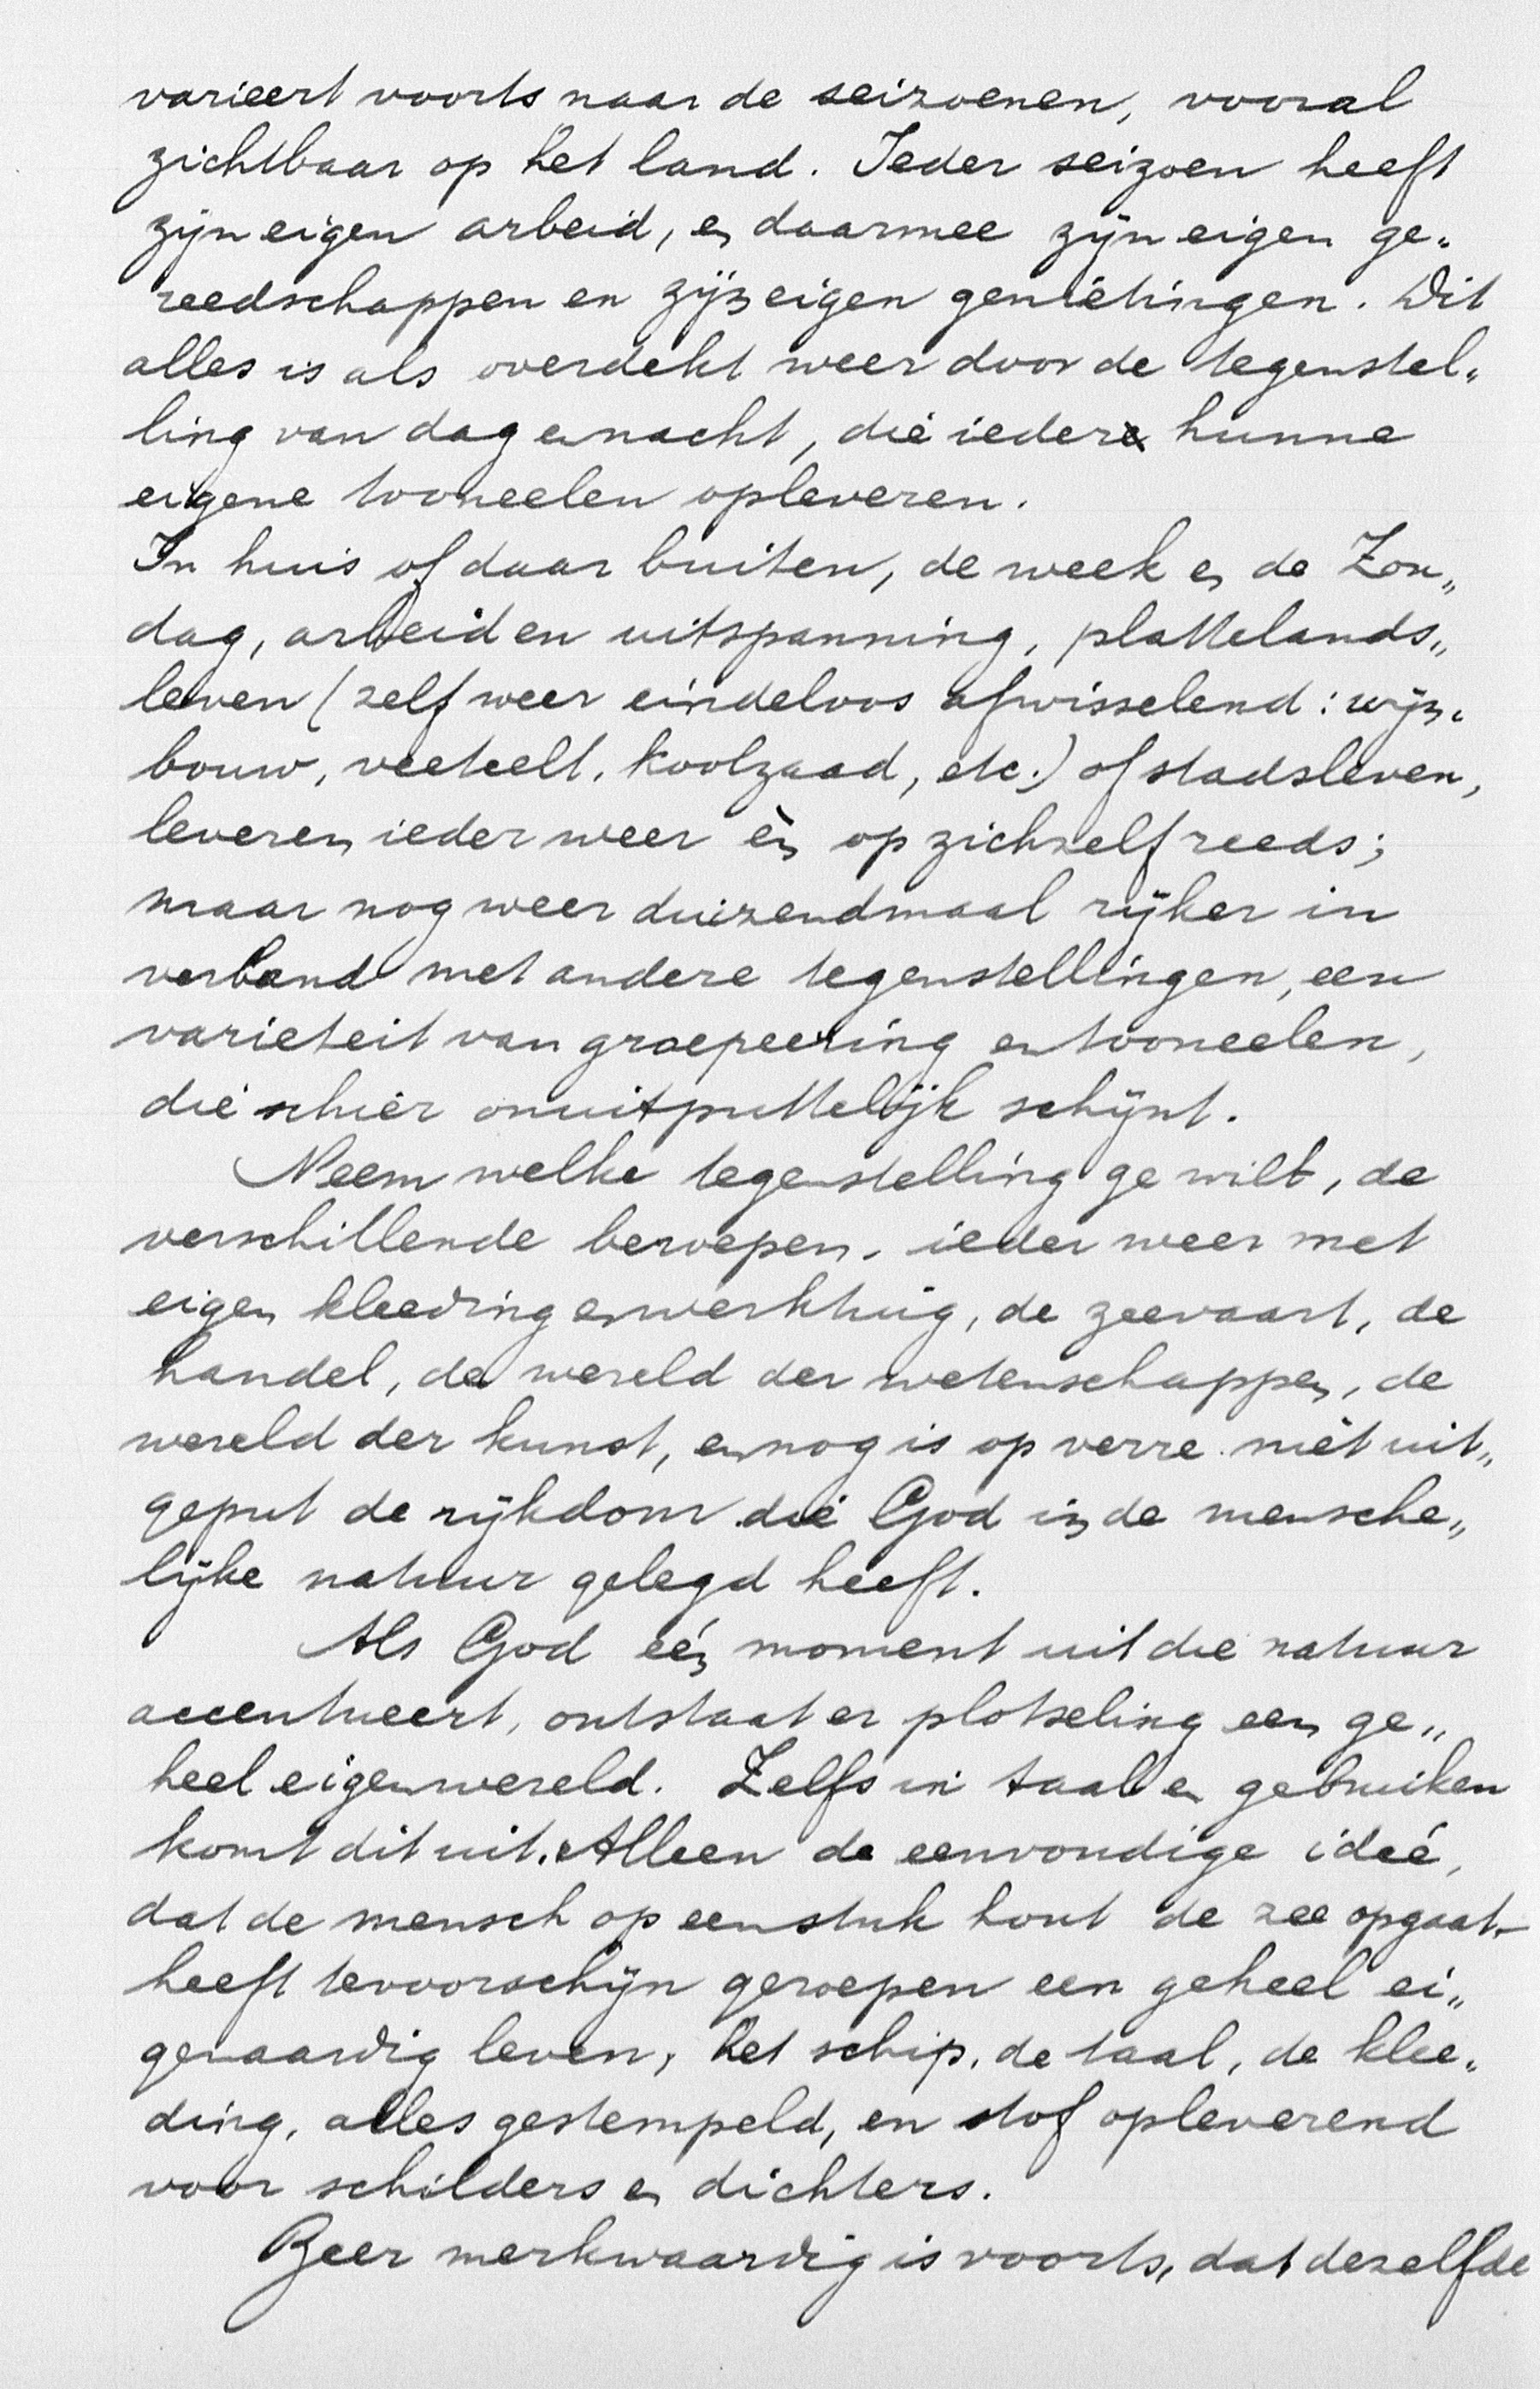 varieert voorts naar de seizoenen, vooral
zichtbaar op het land. Ieder seizoen heeft
zijn eigen arbeid, en daarmee zijn eigen ge„
reedschappen en zijn eigen genietingen. Dit
alles is als overdekt weer door de tegenstel„
ling van dag en nacht, die ieder hunne
eigene tooneelen opleveren.
In huis of daar buiten, de week en de Zon„
dag, arbeid en uitspanning, plattelands„
leven (zelf weer eindeloos afwisselend: wijn„
bouw, veeteelt, koolzaad, etc.) of stadsleven,
leveren ieder weer èn op zichzelf reeds;
maar nog weer duizendmaal rijker in
verband met andere tegenstellingen, een
varieteit van groepeering en tooneelen,
die schier onuitputtelijk schijnt.
Neem welke tegenstelling ge wilt, de
verschillende beroepen, ieder weer met
eigen kleeding en werktuig, de zeevaart, de
handel, de wereld der wetenschappen, de
wereld der kunst, en nog is op verre niet uit„
geput de rijkdom die God in de mensche„
lijke natuur gelegd heeft.
Als God één moment uit die natuur
accentueert, ontstaat er plotseling een ge„
heel eigen wereld. Zelfs in taal en gebruiken
komt dit uit. Alleen de eenvoudige ideé,
dat de mensch op een stuk hout de zee opgaat
heeft tevoorschijn geroepen een geheel ei„
genaardig leven, het schip, de taal, de klee„
ding, alles gestempeld, en stof opleverend
voor schilders en dichters.
Zeer merkwaardig is voorts, dat dezelfde